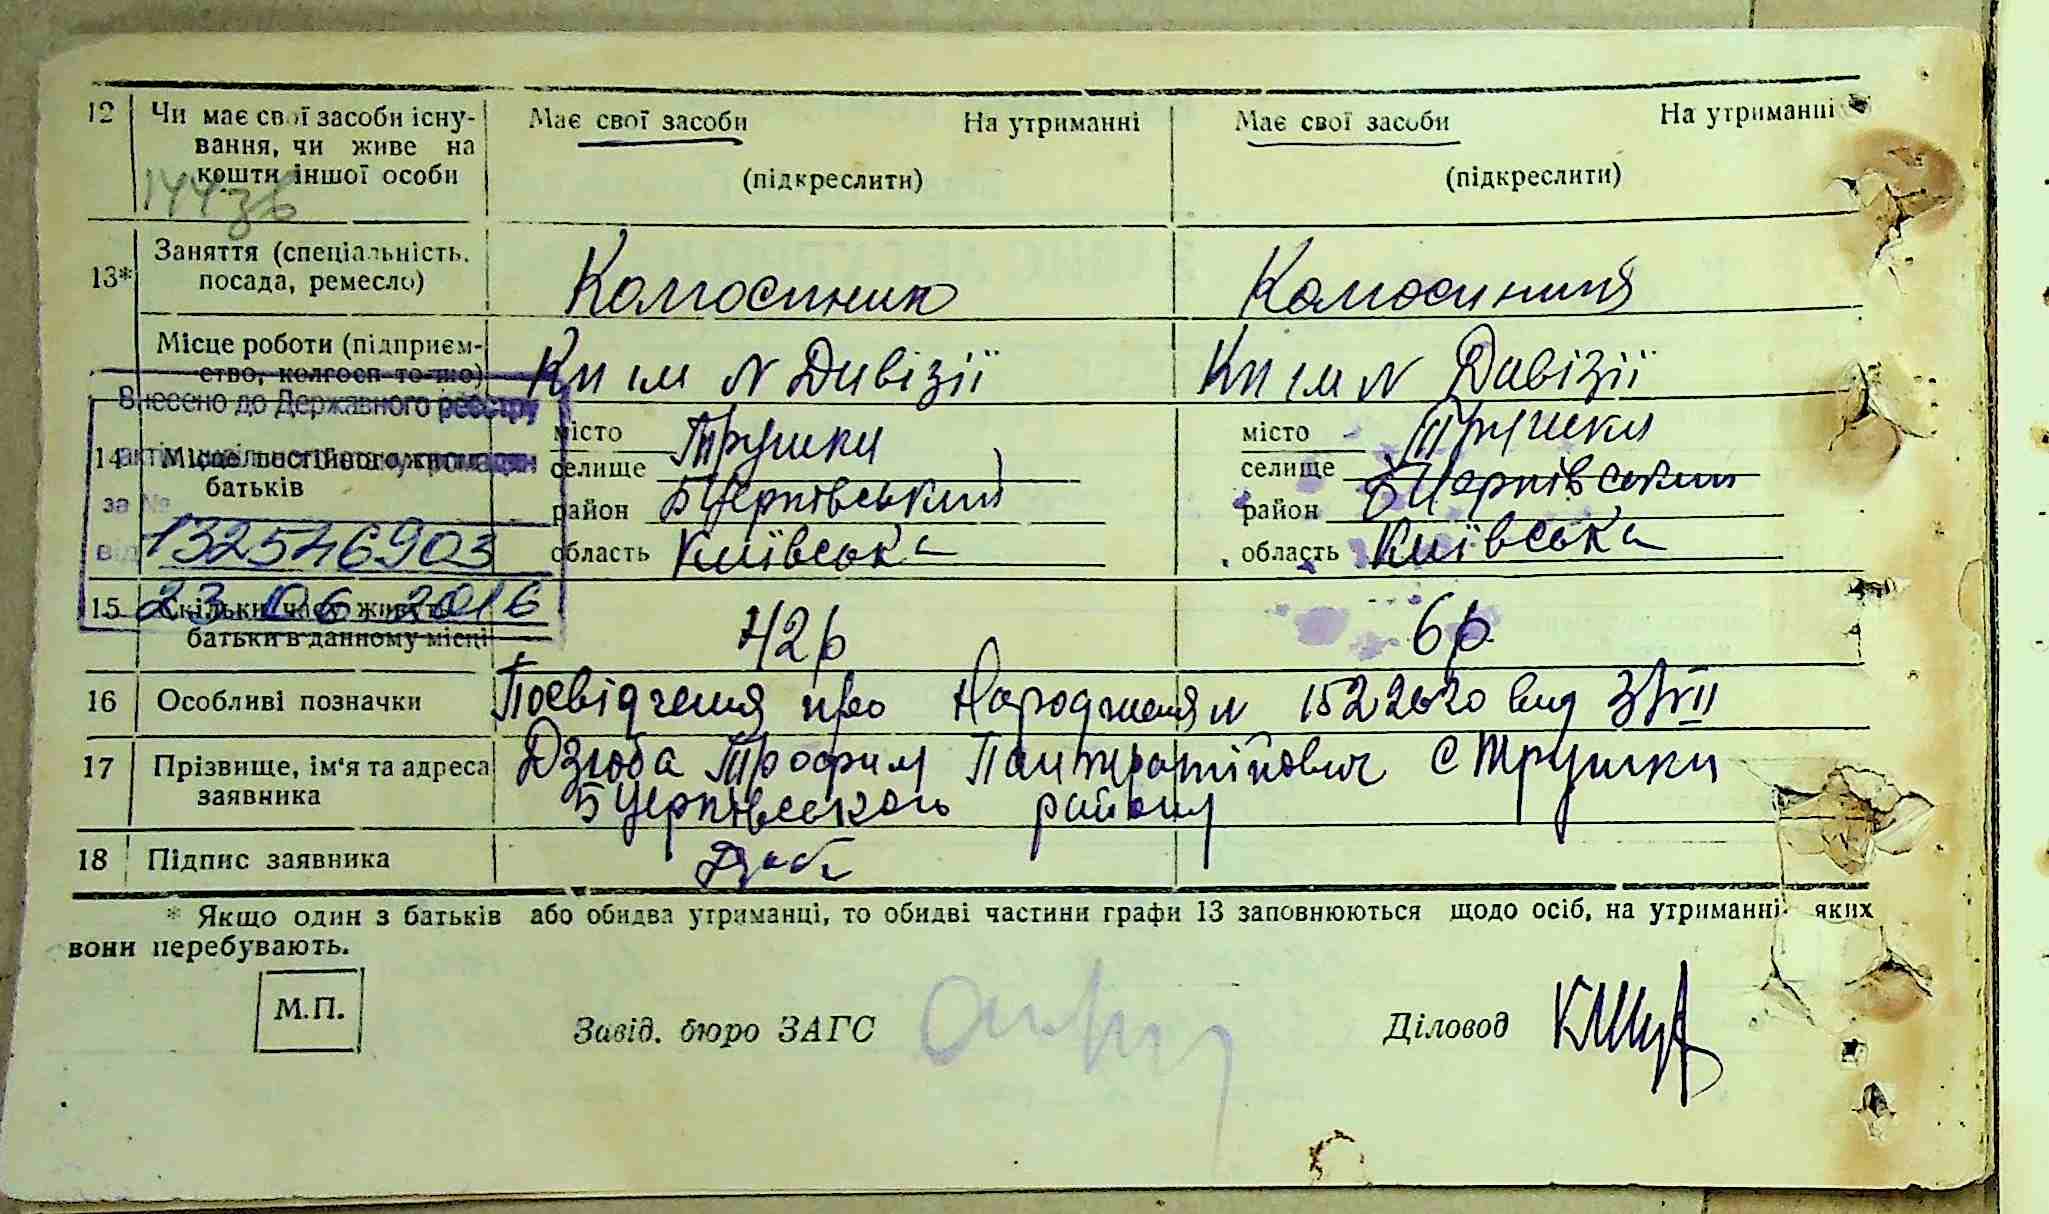 12 Чи має свої засоби існу- Має свої засоби На утриманні Має свої засоби На утриманні
вання, чи живе на
кошти іншої особи (підкреслити) (підкреслити)
13* Заняття (спеціальність, посада, ремесло) Колгоспник Колгоспниця
Місце роботи (підприєм- Кп ім Дивізії Кп ім Дивізії
ство, колгосп то-що)
Внесено до Державного реєстру
актів цивільного стану громадян
за №
132546903
від 23 06 2016
14 Місце постійного життя батьків
місто Трушки місто Трушки
селище селище
район БЦерківський район БЦерківський
область Київська область Київська
15 Скільки часу живуть 42р 6р
батьки в данному місці
16 Особливі позначки Посвідчення про Народження N вид
17 Прізвище, ім'я та адреса Дзюба Трофим с Трушки
заявника БЦерківського району
18 Підпис заявника
* Якщо один з батьків або обидва утриманці, то обидві частини графи 13 заповнюються щодо осіб, на утриманні яких
вони перебувають.
М.П.
Завід. бюро ЗАГС Діловод